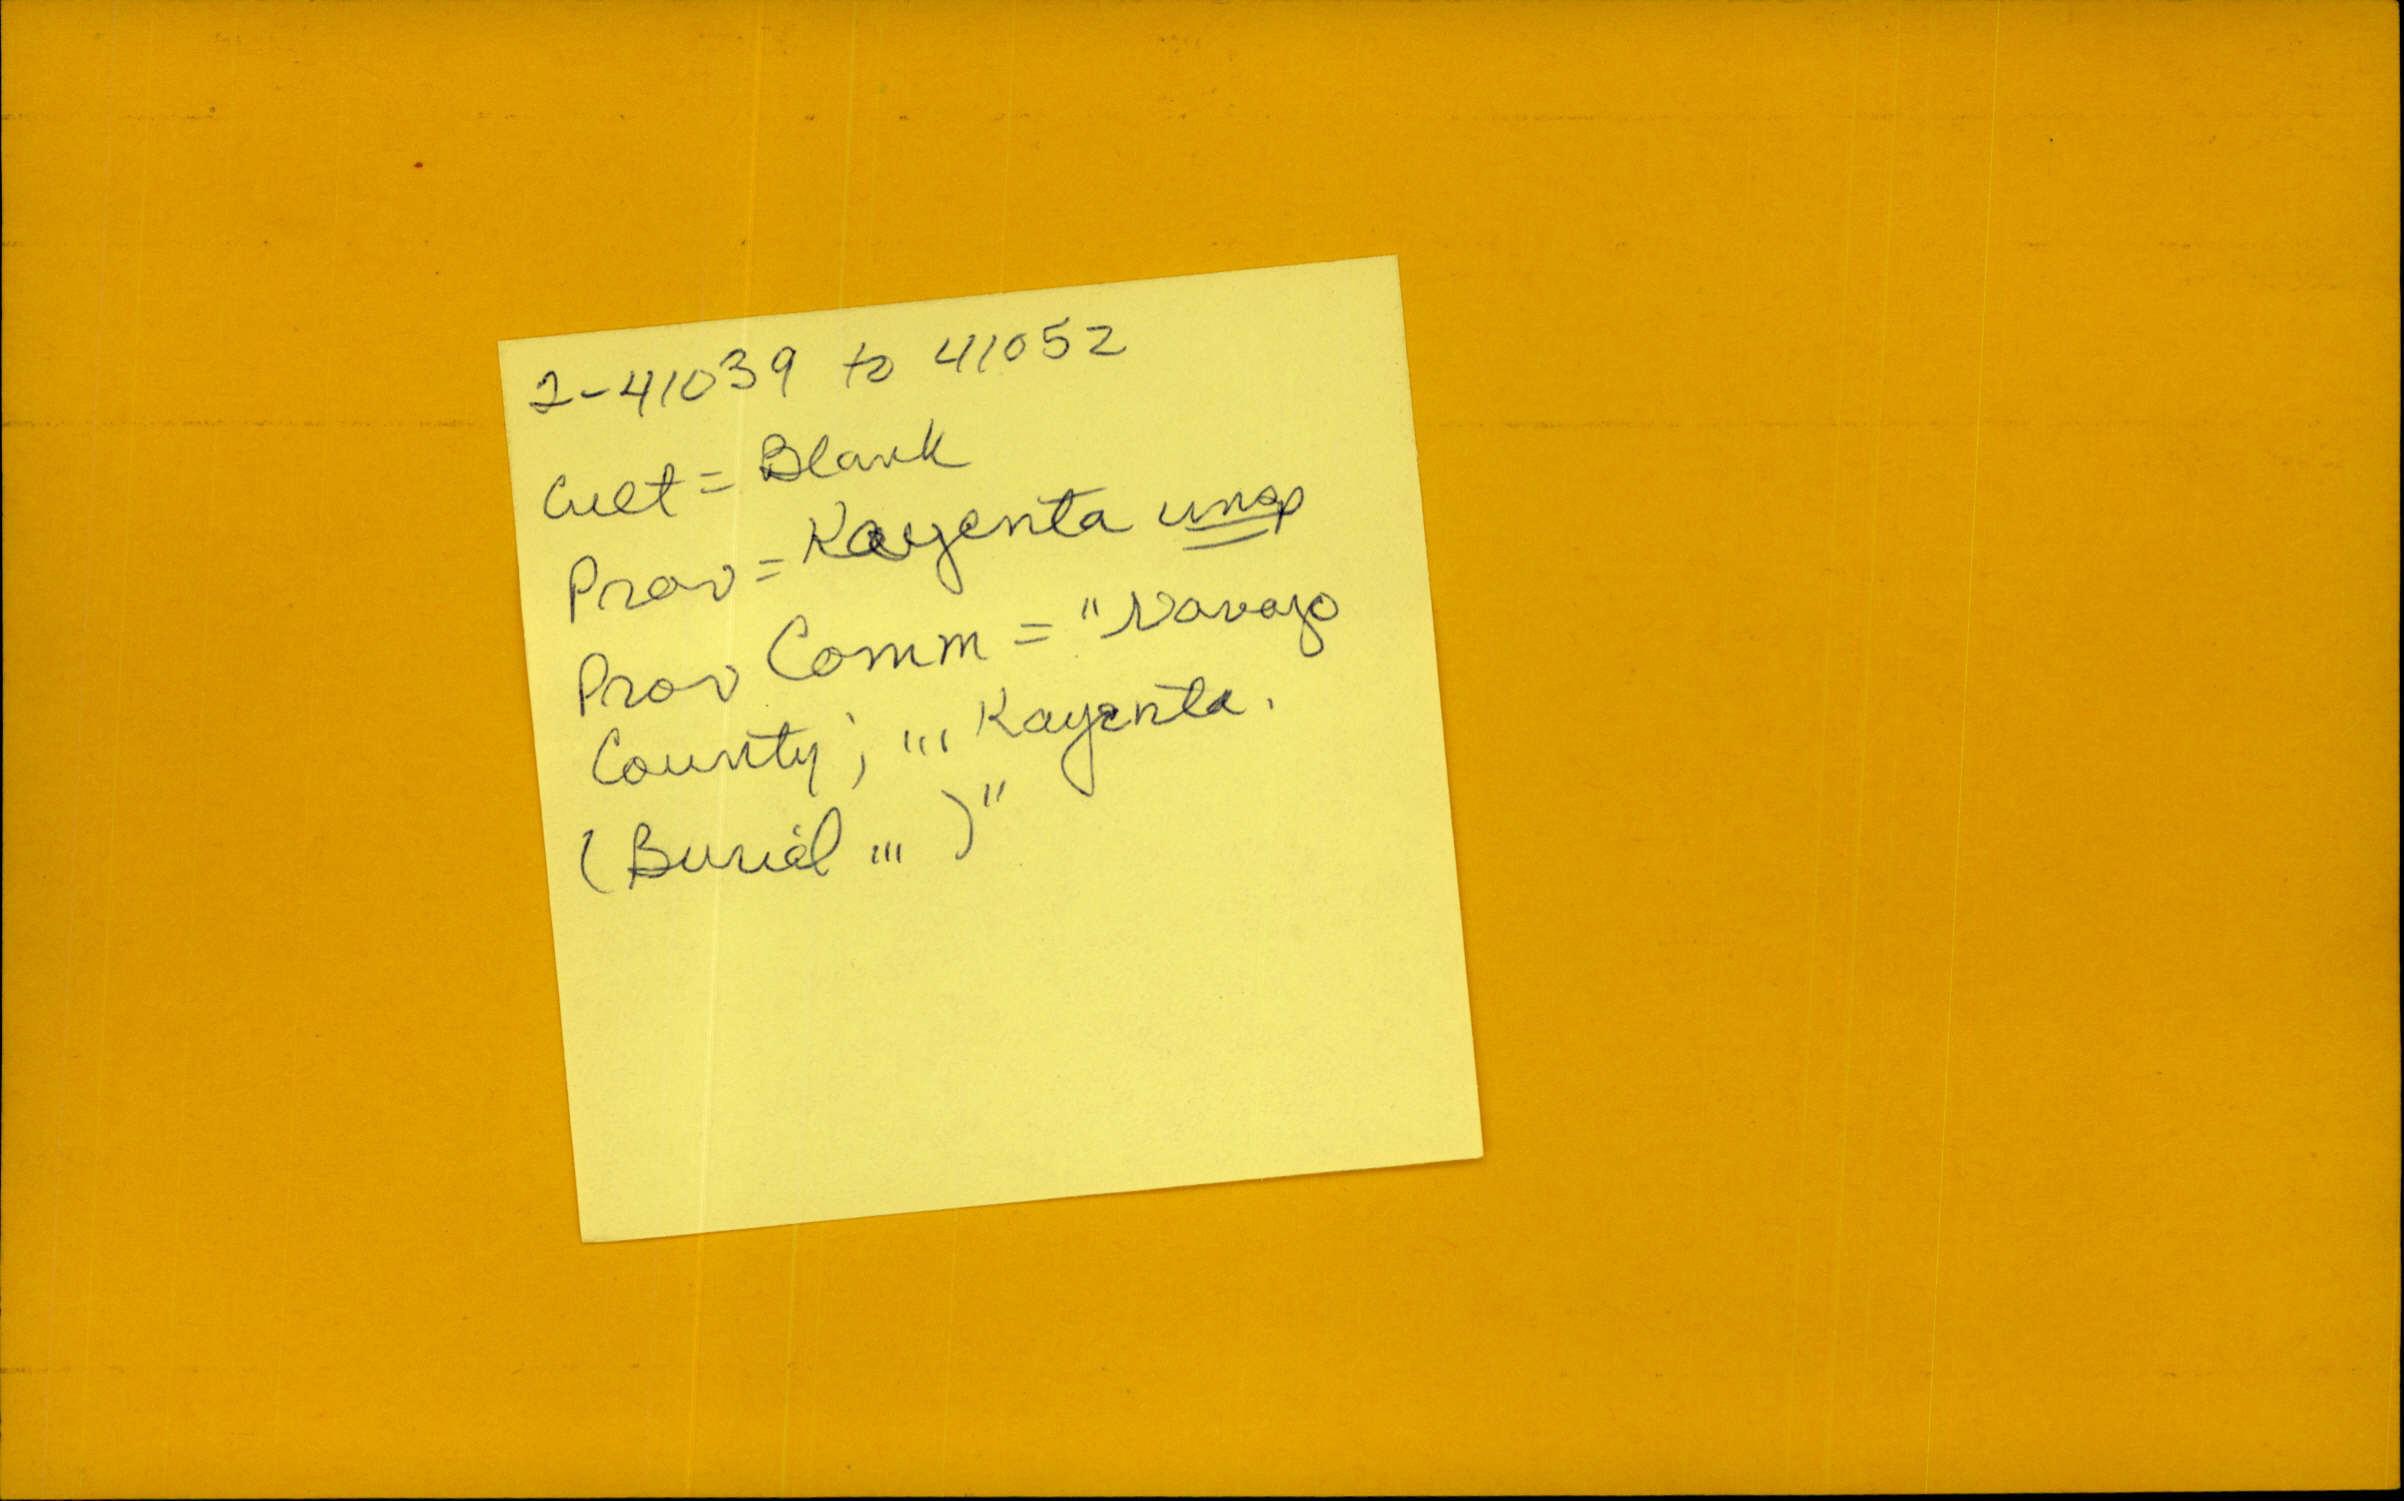 2-41039 to 41052
Cult = Blank
Prov = Kayenta unsp
Prov Comm = "Navajo
County; ... Kayenta.
(Burial ... )"